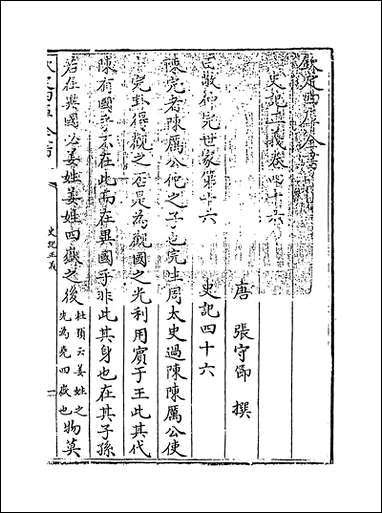 欽定四庫全書
史記正義卷四十六
唐 張守節 撰
田敬仲完世家第十六 史記四十六
陳完者陳厲公佗之子也完生周太史過陳陳厲公使
完卦得觀之否是為觀國之光利用賓于王此其代
陳有國乎不在此而在異國乎非此其身也在其子孫
若在異國必姜姓姜姓四嶽之後杜預云姜姓之先為堯四嶽也物莫
史記正義